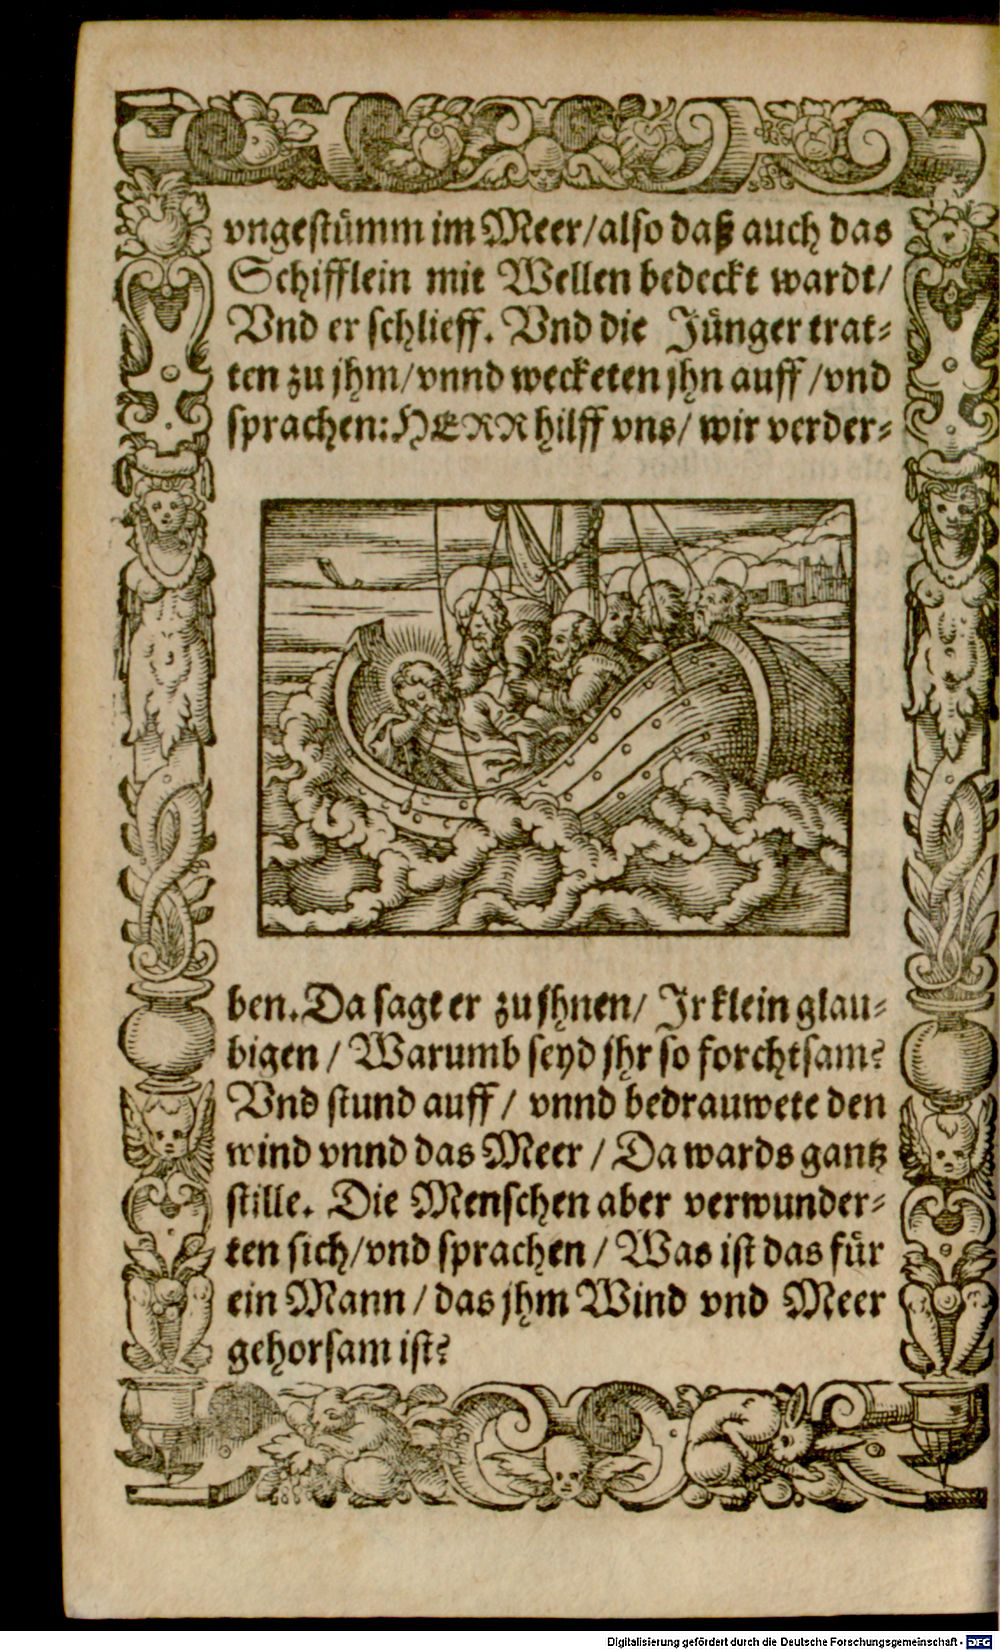 vngestümm im Meer/also daß auch das
Schifflein mit Wellen bedeckt wardt/
Vnd er schlieff. Vnd die Jünger trat-
ten zu jhm/vnnd wecketen jhn auff/vnd
sprachen: HERR hilff vns/ wir verder-
ben. Da sagt er zu jhnen/ Jr klein glau-
bigen / Warumb seyd jhr so forchtsam?
Vnd stund auff / vnnd bedrauwete den
wind vnnd das Meer / Da wards gantz
stille. Die Menschen aber verwunder-
ten sich/vnd sprachen / Was ist das für
ein Mann / das jhm Wind vnd Meer
gehorsam ist?
Digitalisierung gefördert durch die Deutsche Forschungsgemeinschaft - DFG